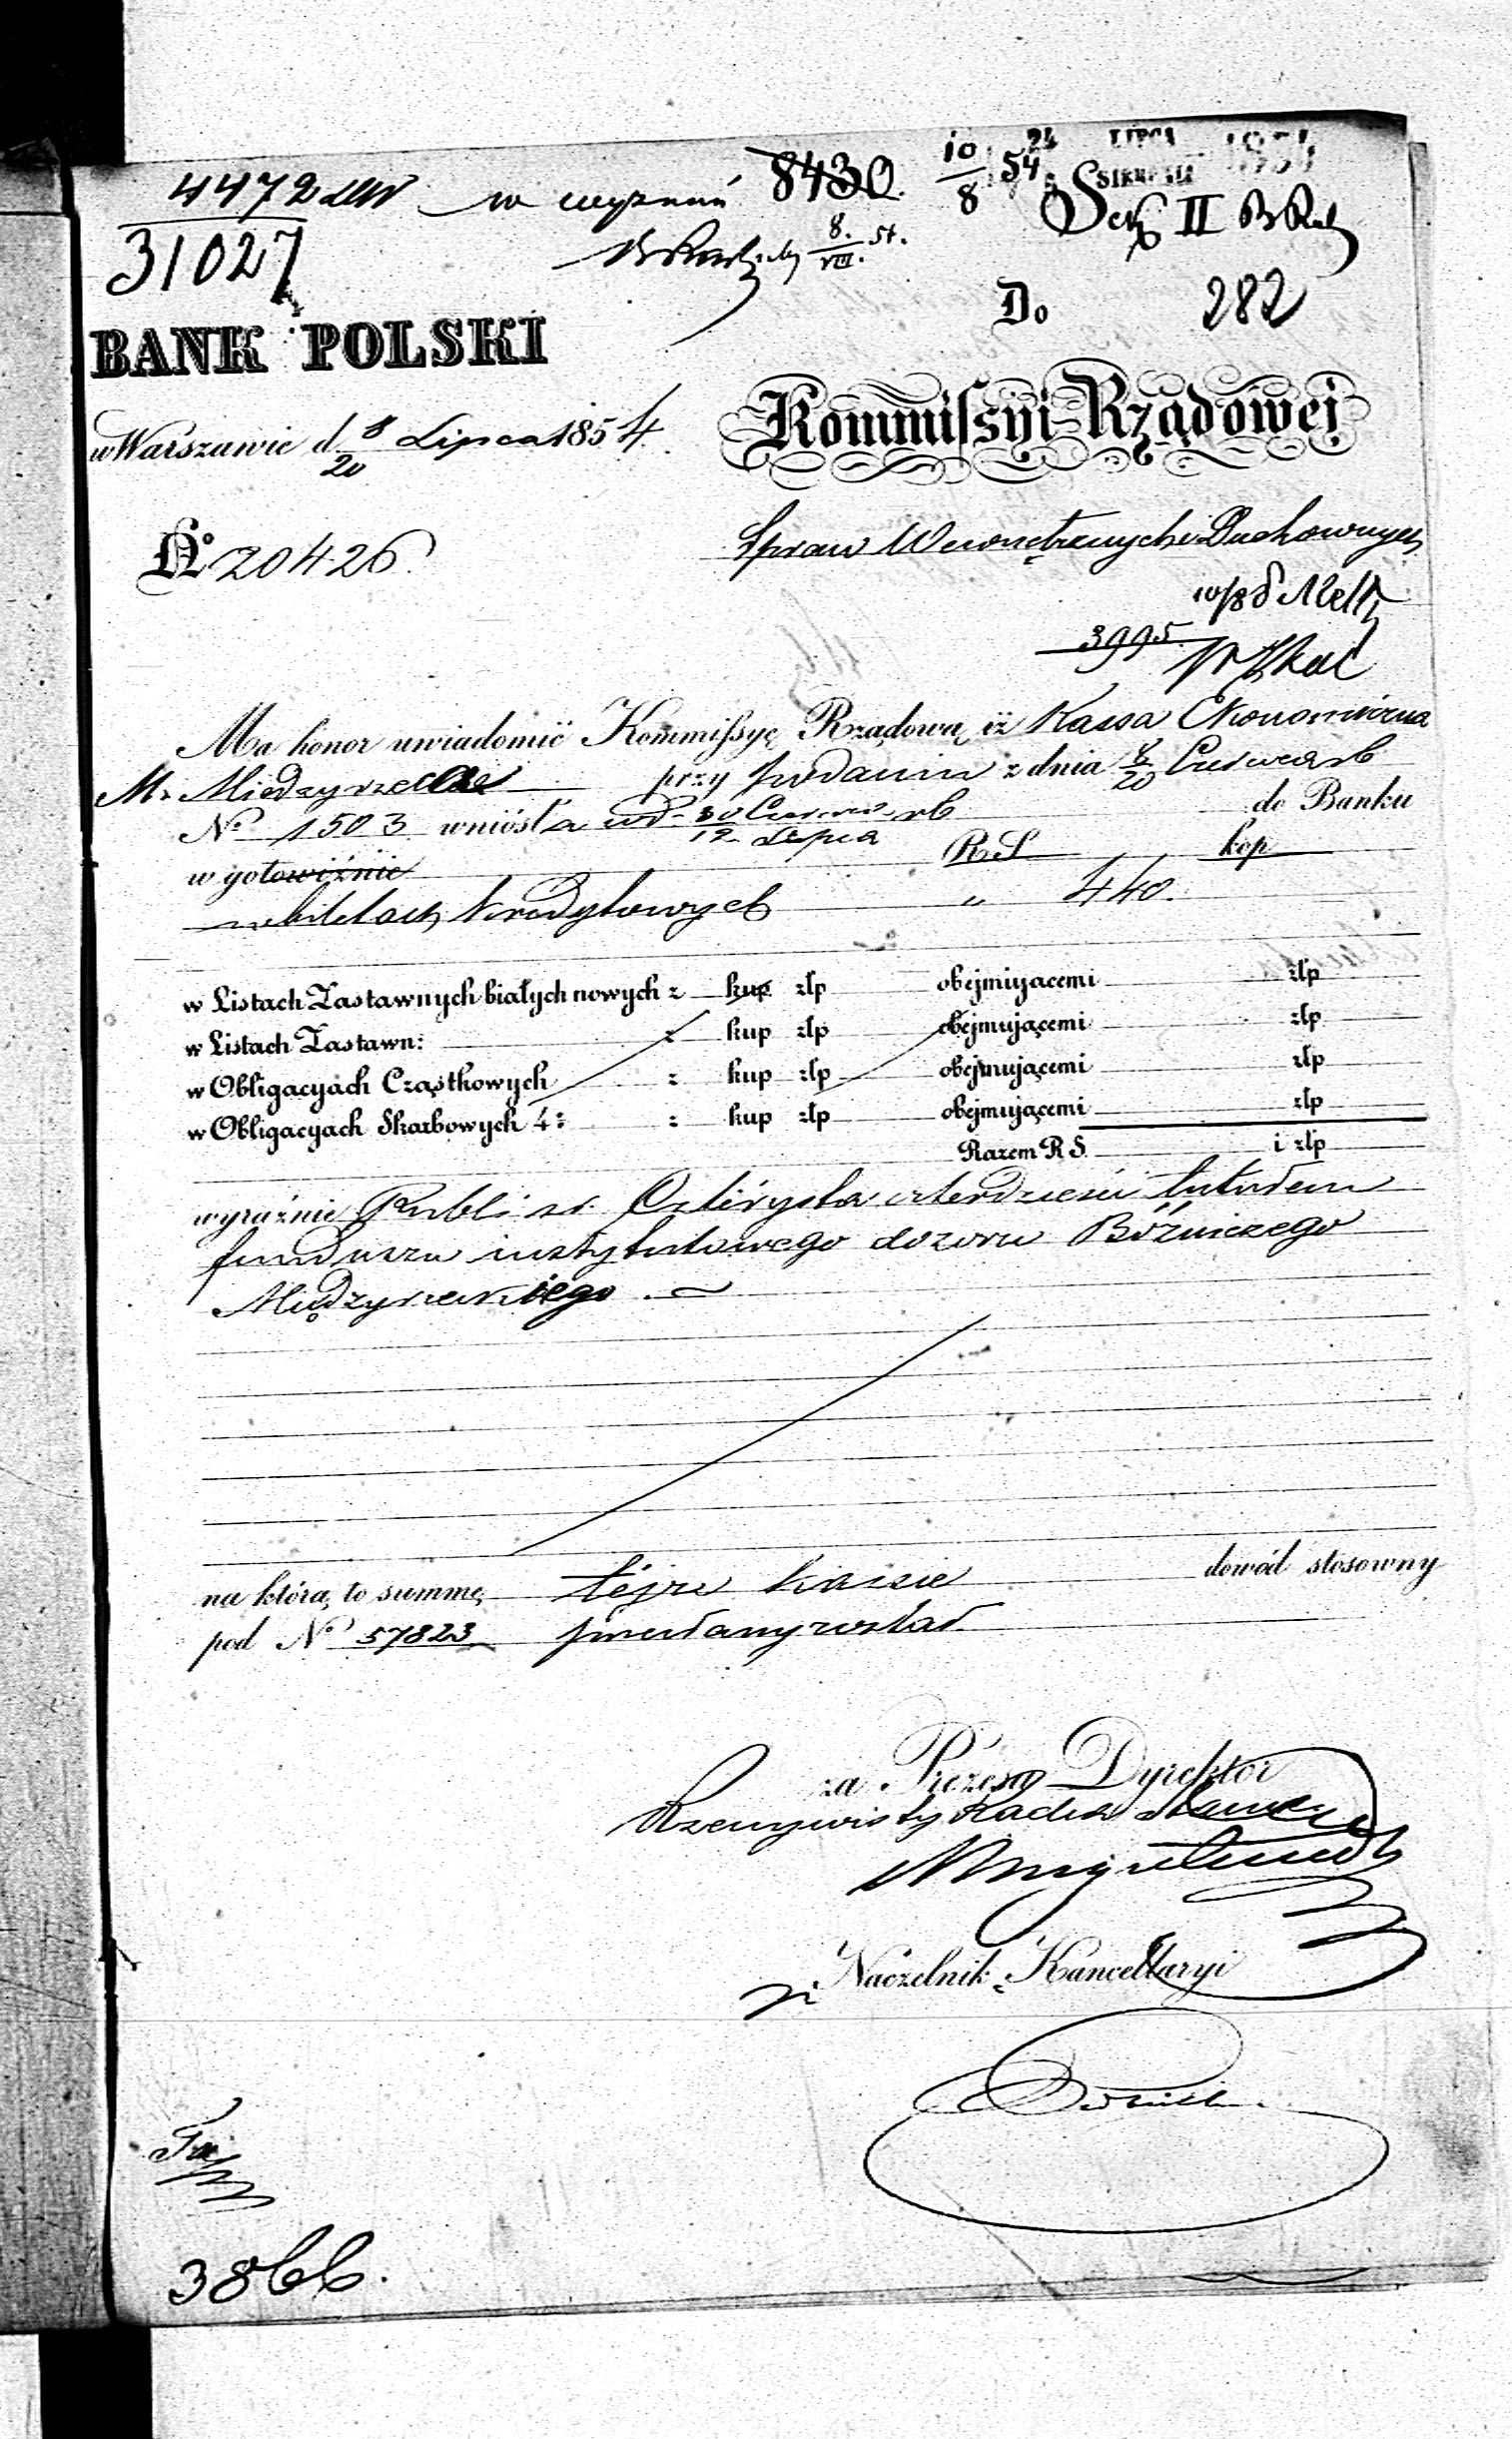 4472
31027
8430.
10/8 54
24 LIPCA 1854
SIERPNIA
8./VIII. 54.
Sek II
Do 282
BANK POLSKI
w Warszawie d 8/20 Lipca 1854.
Kommissyi Rządowej
No 20426.
Spraw Wewnętrznych i Duchownych
3995
Ma honor uwiadomić Kommissyę Rządową iż Kassa Ekonomiczna
M. Międzyrzecka przy podaniu z dnia 8/20 Czerwca rb
No 1503 wniosła pod 30 Czerwca/12 Lipca rb do Banku
w gotowiźnie R.S. kop
w biletach kredytowych „ 440.
w Listach Zastawnych białych nowych z kup złp obejmującemi złp
w Listach Zastawn: z kup złp obejmującemi złp
w Obligacyach Cząstkowych z kup złp obejmującemi złp
w Obligacyach Skarbowych 4: z kup złp obejmującemi złp
Razem R S. i złp
wyraźnie Rubli sr. Czterysta czterdzieści tytułem
funduszu instytutowego dozoru Bóżniczego
Międzyrzeckiego.
na którą to summę tejże kassie dowód stosowny
pod No 57823 przesłany został.
za Prezesa Dyrektor
Rzeczywisty Radca Stanu
Naczelnik Kancellaryi
3866.